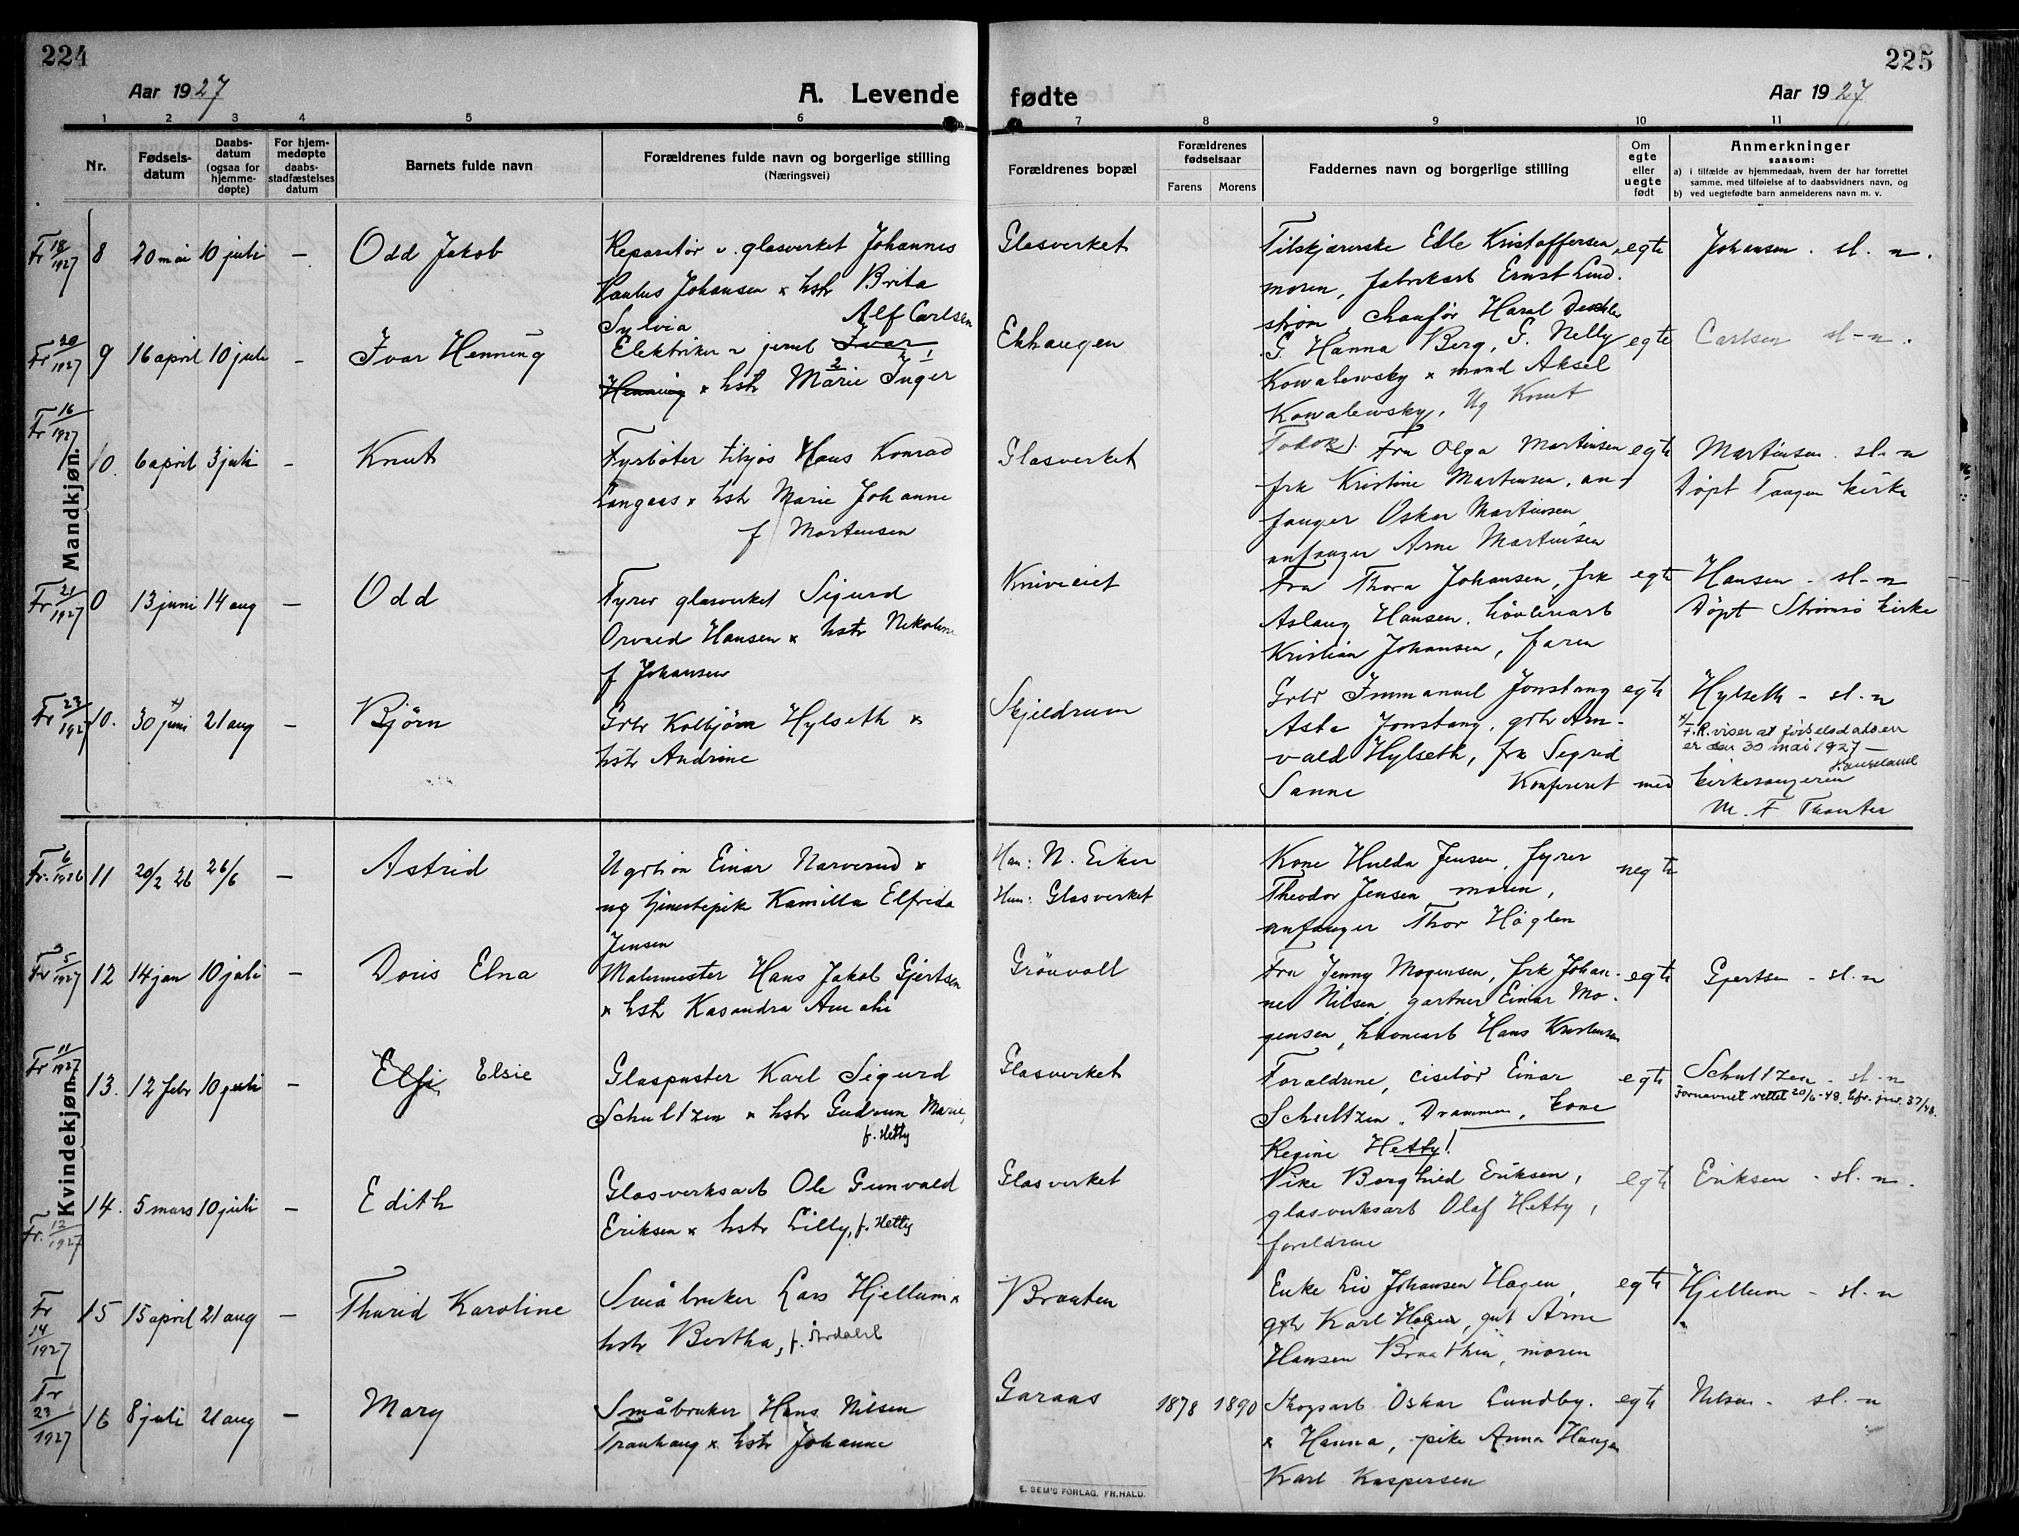 224
Aar 1927
A. Levende
fødte
Aar 1927
225
1 2 3 4 5 6 7 8 9 10 11
Nr.
Fødsels-
datum
Daabs-
datum
(ogsaa for
hjemme-
døpte)
For hjem-
medøpte
daabs-
stadfæstelses
datum
Barnets fulde navn
Forældrenes fulde navn og borgerlige stilling
(Næringsvei)
Forældrenes bopæl
Forældrenes
fødselsaar
Farens Morens
Faddernes navn og borgerlige stilling
Om
egte
eller
uegte
født
Anmerkninger
saasom:
a) i tilfælde av hjemmedaab, hvem der har forrettet
samme, med tilføielse af to daabsvidners navn, og
b) ved uegtefødte barn anmelderens navn m. v.
Mandkjøn.
Fr 18/1927 8 20 mai 10 juli – Odd Jakob
Reparatør v. glasverket Johannes
Paulus Johansen x hstr Brita
Sylvia
Glasverket
Tilskjærerske Edle Kristoffersen,
moren, fabrikarb Ernst Lind-
strøm chaufør Haral
egte
Johansen. sl. n.
Fr 20/1927 9 16 april 10 juli – Ivar Henning
Alf Carlsen
Elektriker v jernb Ivar
Henning x hstr Marie Inger
2 1
Ekhaugen
G. Hanna Berg, G. Nelly
Kowalewsky x mand Aksel
Kowalewsky, Ug Knut
egte
Carlsen sl-n.
Fr 16/1927 10. 6 april 3 juli – Knut
Fyrbøter tilsjøs Hans Konrad
Langaas x hstr Marie Johanne
f Martensen
Glasverket
Fru Olga Martinsen
frk Kristine Martensen, an-
fanger Oskar Martinsen,
anfanger Arne Martinsen
egte
Martinsen. sl. n
Døpt Tangen kirke
Fr 21/1927 0 13 juni 14 aug – Odd
Fyrer glasverket Sigurd
Orvald Hansen x hstr Nikoline
f Johansen
Kniveiet
Fru Thora Johansen, frk
Aslaug Hansen. høvleriarb
Kristian Johansen, faren
egte
Hansen – sl-n
Døpt Strømsø kirke
Fr 23/1927 10. 30 juni x) 21 aug – Bjørn
Grbr Kolbjørn Hylseth x
hstr Andrine
Skjeldrum
Grbr Immanuel Jonstang
Asta Jonstang, grbr Arn-
vald Hylseth, frk Sigrid
Sanne
egte
Hylseth – sl-n
x/ F.R. viser at fødselsdatoen
er den 30 mai 1927 –
Konfereret med kirkesangeren
Kvindekjøn.
Fr. 6/1926 11 20/2 26 26/6 – Astrid
Ugrbon Einar Narverud x
ug tjenestepik Kamilla Elfrida
Jensen
Han: N. Eiker
Hun: Glasverket
Kone Hulda Jensen, fyrer
Theodor Jensen moren,
anfanger Thor Høglen
uegte
Fr 5/1927 12 14 jan 10 juli – Doris Elna
Malermester Hans Jakob Gjertsen
x hstr Kasandra Amalie
Grønvoll
Fru Jenny Mogensen, frk Johan-
ne Nilsen, gartner Einar Mo-
gensen, Hans Kristensen
egte
Gjertsen – sl. n
Fr 11/1927 13. 12 febr 10 juli – Elfi Elsie
Glaspuster Karl Sigurd
Schultzen x hstr Gudrun Marie,
f. Hetty
Glasverket
Foraldrene, ciselør Einar
Schultzen, Drammen, kone
Regine Hetty!
egte
Schultzen – sl-n
Fornavnet rettet 20/6-48, kfr. jnr. 37/48.
Fr. 12/1927 14. 5 mars 10 juli – Edith
Glasverksarb Ole Gunvald
Eriksen x hstr Lilly, f. Hetty
Glasverket
Pike Borghild Eriksen,
glasverksarb Olaf Hetty,
foreldrene
egte
Eriksen – sl. n.
Fr 14/1927 15 15 april 21 aug – Thurid Karoline
Småbruker Lars Hjellum x
hstr Bertha, f. Årdalel
Braaten
Enke Liv Johansen Hagen,
grbr Karl Hagen, gut Arne
Hansen Braathen, moren
egte
Hjellum – sl. n
Fr 23/1927 16 8 juli 21 aug – Mary
Småbruker Hans Nilsen
Tranhaug x hstr Johanne
Garaas
1878 1890
Skogsarb Oskar Lundby.
x Hanna, pike Anna Haugen
Karl Kaspersen
egte
Nilsen – sl. n
E. SEM'S FORLAG, FR.HALD.